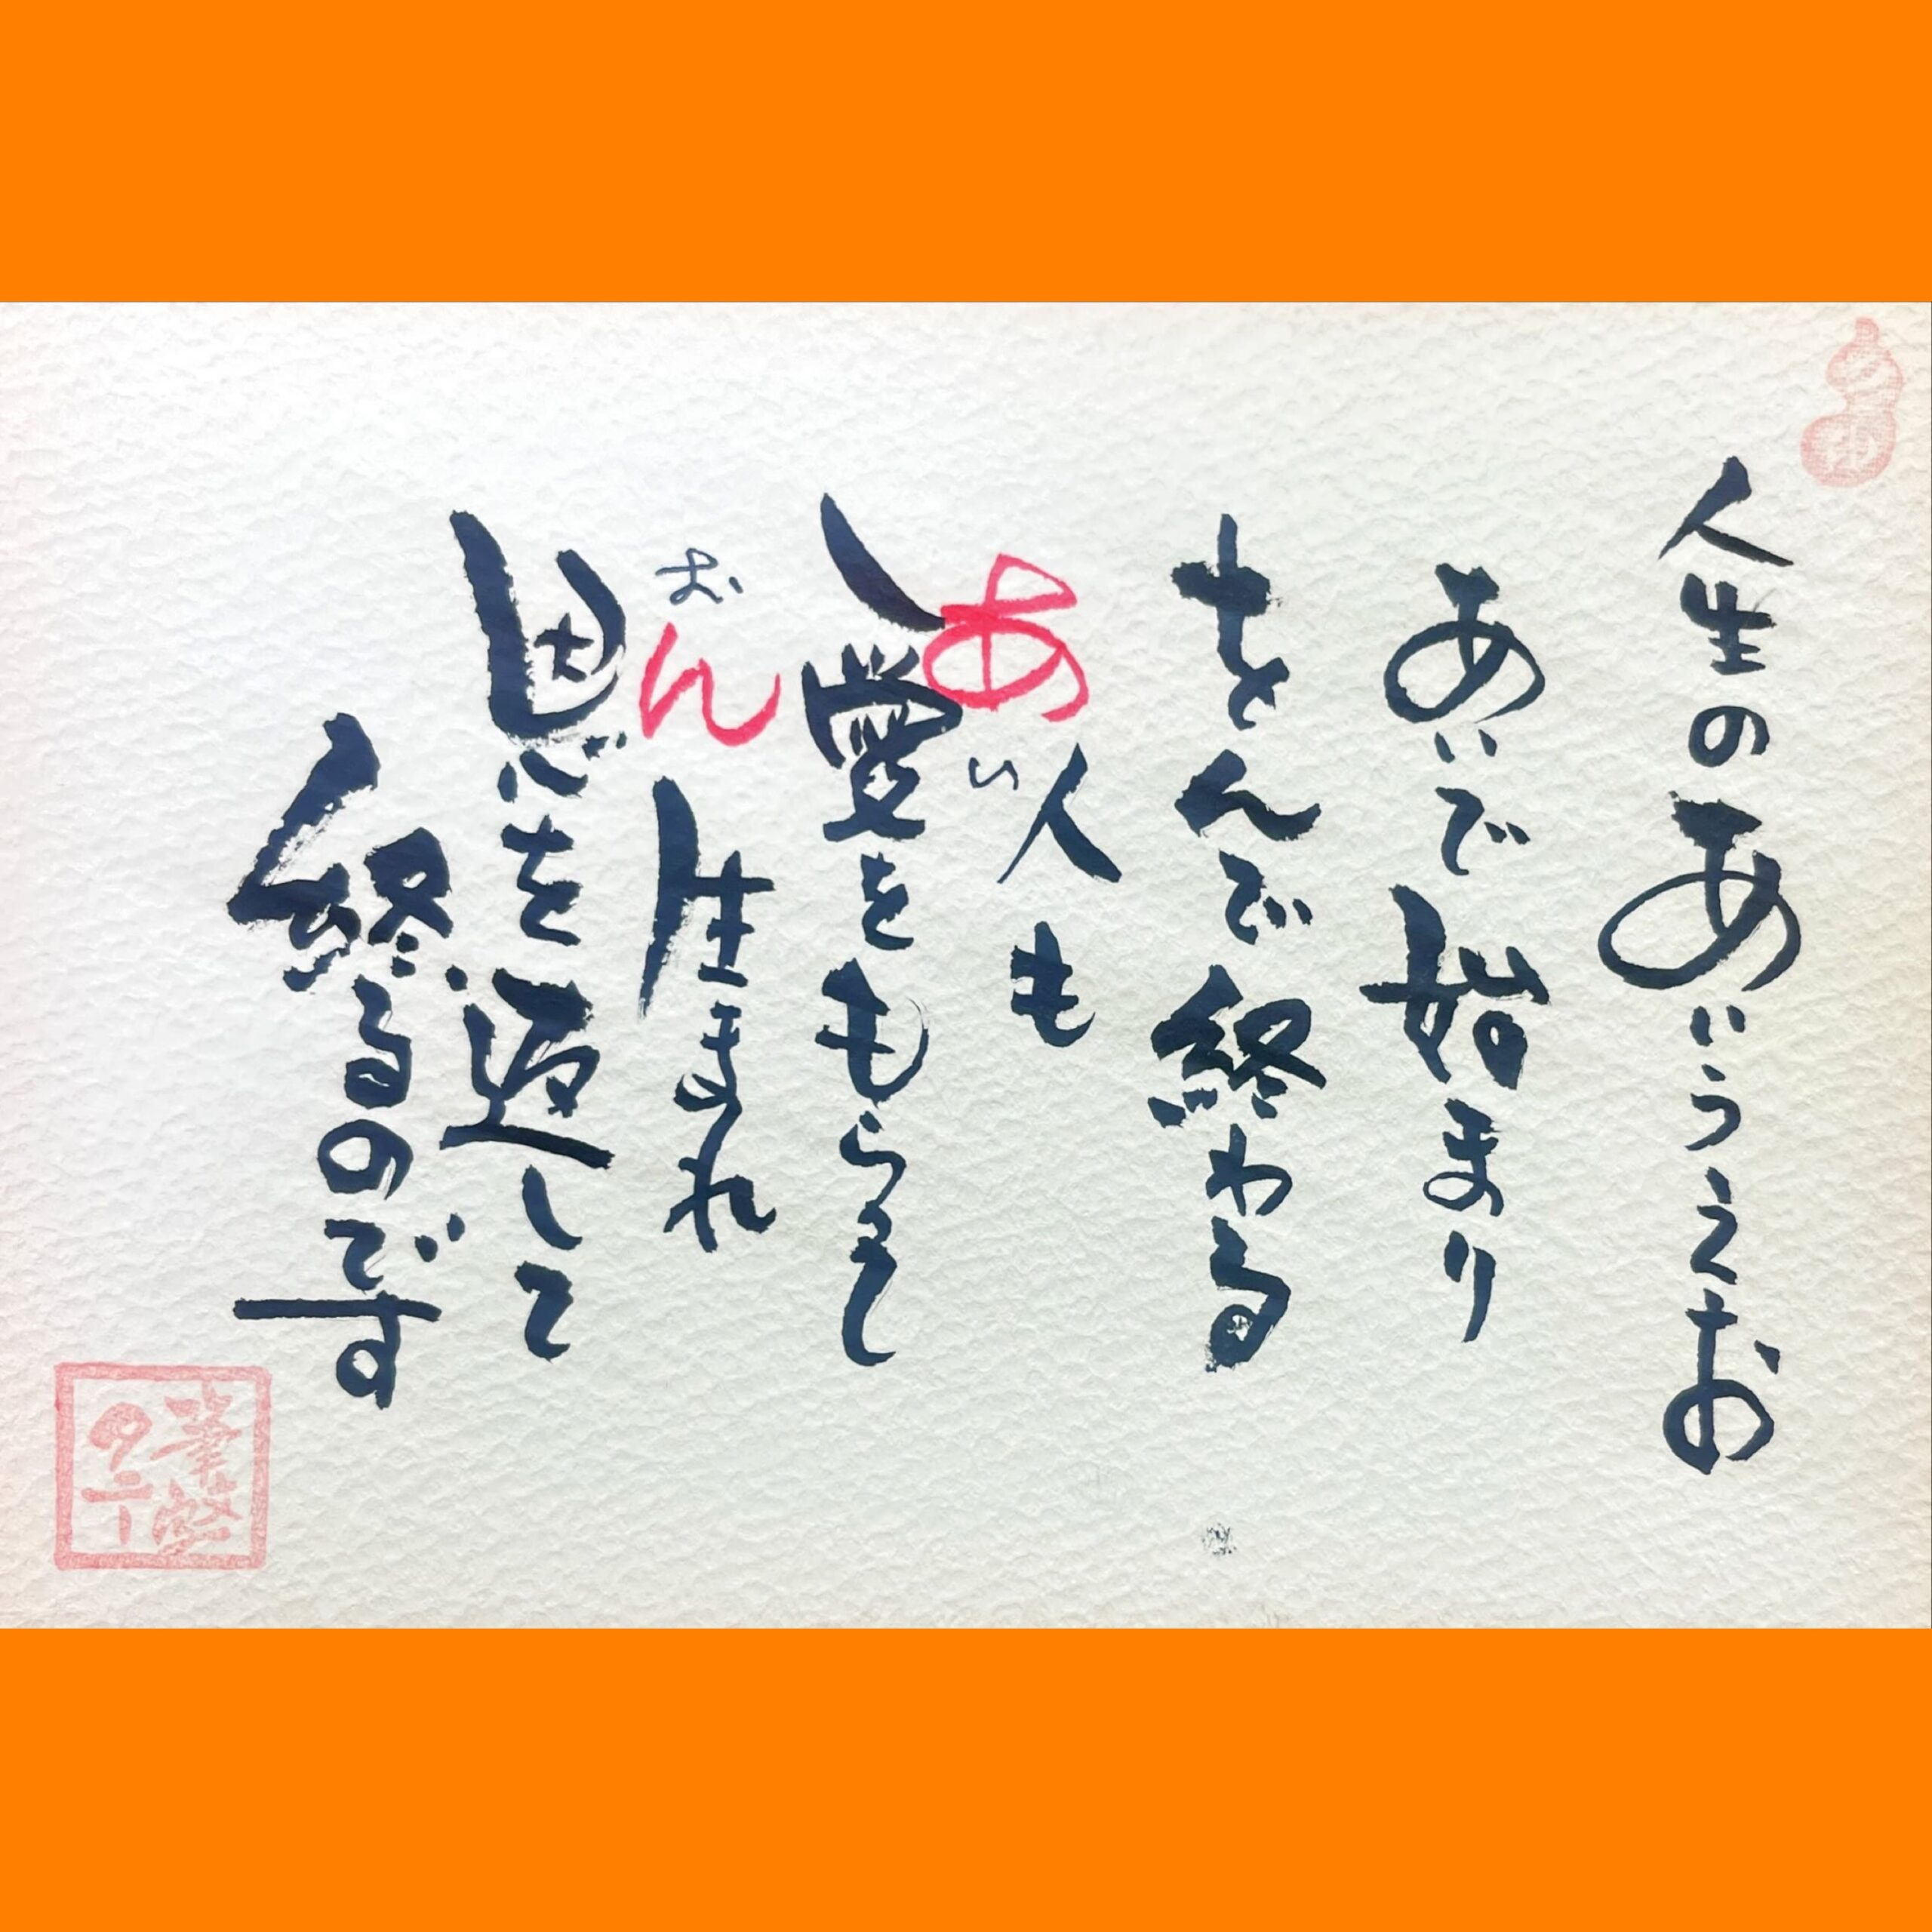 人生のあいうえお
あいで始まり
をんで終わる
人も
あい
愛をもらって
生まれ
おん
恩を返して
終るのです